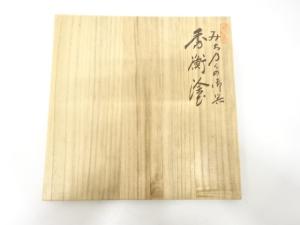 みちのくの御器
秀衡塗